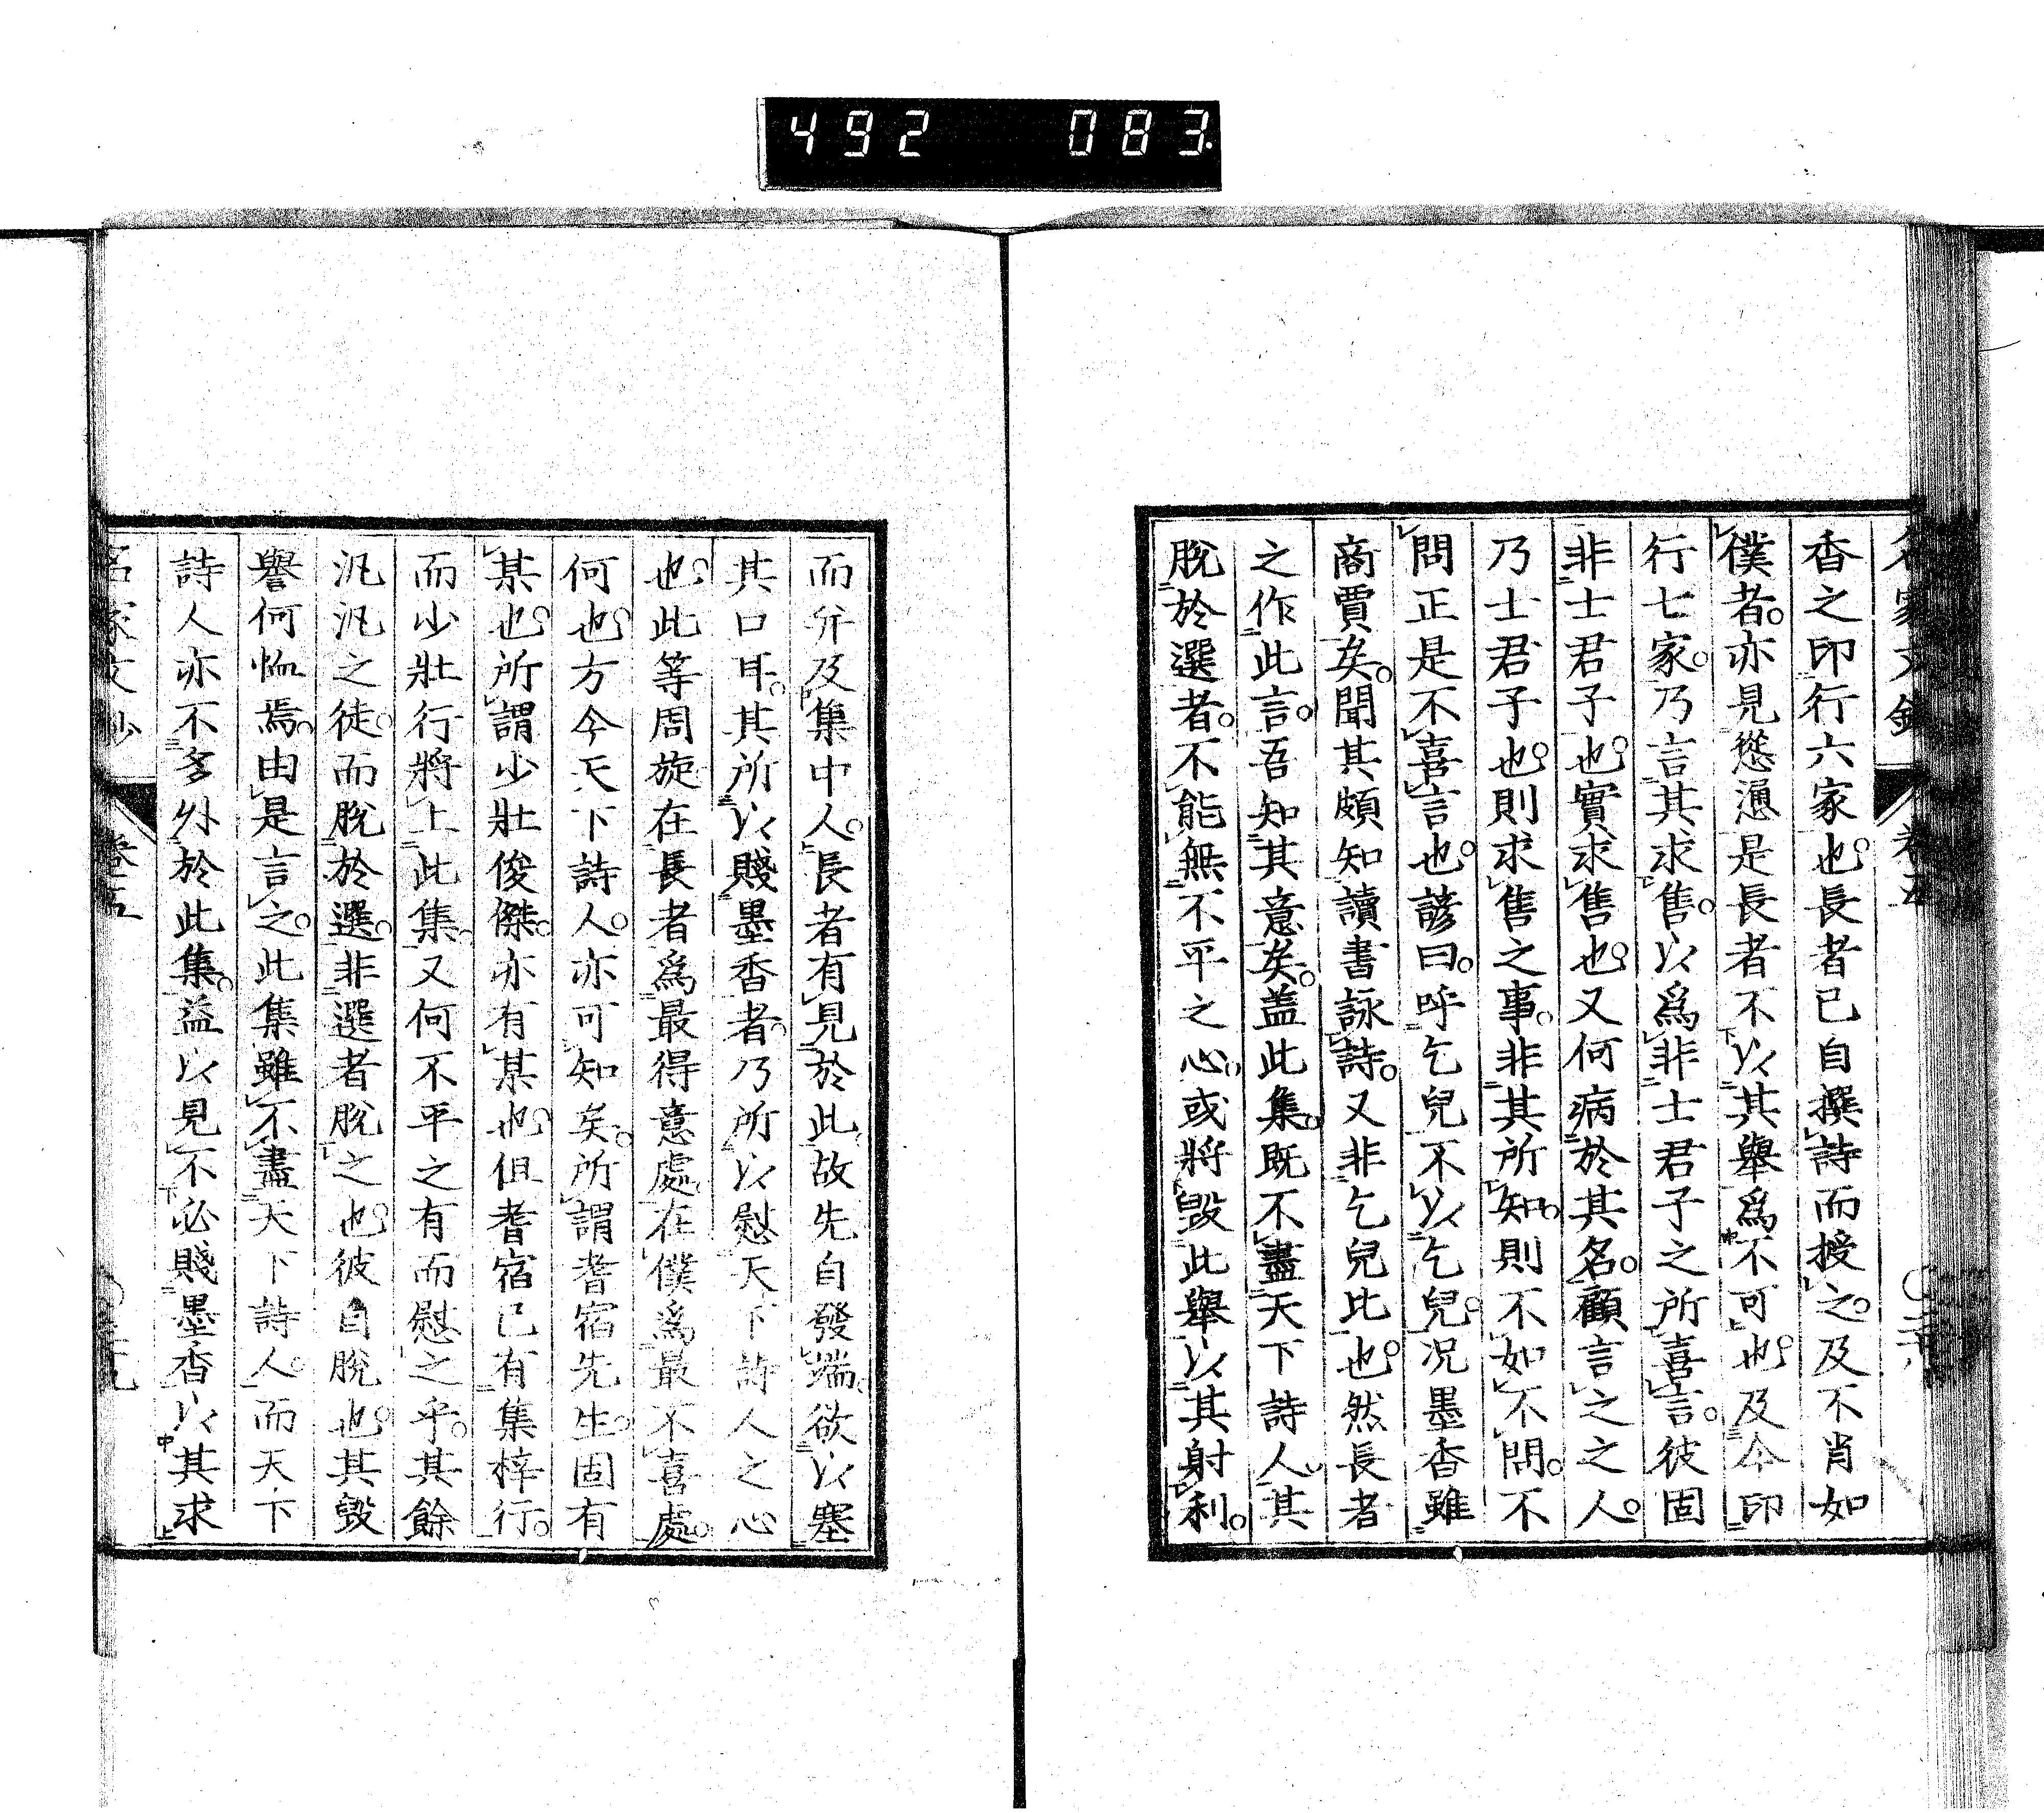 492 083
香之印行六家也長者已自撰詩而授之及不肖如
僕者亦見慫慂是長者不以其舉爲不可也及今印
行七家乃言其求售以爲非士君子之所喜言彼固
非士君子也實求售也又何病於其名顧言之之人
乃士君子也則求售之事非其所知則不如不問不
問正是不喜言也諺曰呼乞兒不以乞兒況墨香雖
商賈矣聞其頗知讀書詠詩又非乞兒比也然長者
之作此言吾知其意矣盖此集既不盡天下詩人其
脫於選者不能無不平之心或將毀此舉以其射利
而幷及集中人長者有見於此故先自發端欲以塞
其口耳其所以賤墨香者乃所以慰天下詩人之心
也此等周旋在長者爲最得意處在僕爲最不喜處
何也方今天下詩人亦可知矣所謂耆宿先生固有
某也所謂少壯俊傑亦有某也但耆宿已有集梓行
而少壯行將上此集又何不平之有而慰之乎其餘
汎汎之徒而脫於選非選者脫之也彼自脫也其毀
譽何恤焉由是言之此集雖不盡天下詩人而天下
詩人亦不多外於此集益以見不必賤墨香以其求
名家文鈔 卷五